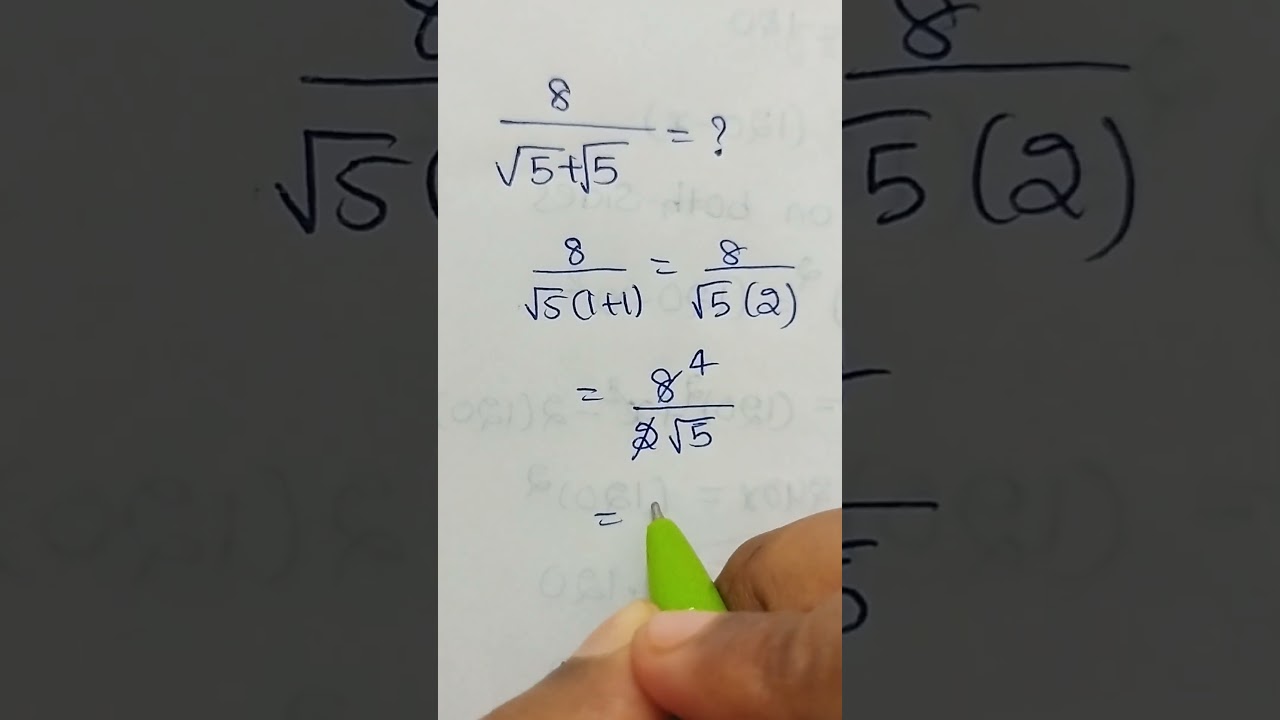 8/(√5+√5) = ?
8/(√5(1+1)) = 8/(√5(2))
= 8⁴/(2√5)
=